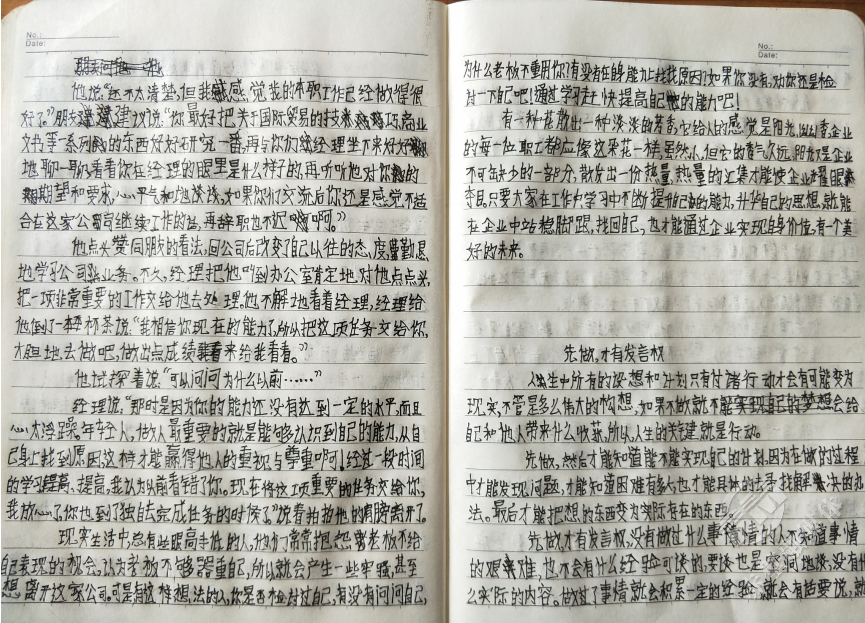 No.:
Date:
他说,“还不太清楚,但我感觉我的本职工作已经做得很
好了。”朋友建议说,“你最好把关于国际贸易的技巧,商业
文书等一系列的东西好好研究一番,再与你们经理坐下来好好
地聊一聊,看看你在经理的眼里是什么样子的,再听听他对你的
期望和要求,心平气和地谈谈,如果你们交流后你还是感觉不适
合在这家公司继续工作的话,再辞职也不迟啊。”
他点头赞同朋友的看法,回公司后改变了自己以往的态度,勤恳
地学习公司业务。不久,经理把他叫到办公室肯定地对他点点头,
把一项非常重要的工作交给他去处理,他不解地看着经理,经理给
他倒了一杯茶说,“我相信你现在的能力了,所以把这项任务交给你,
大胆地去做吧,做出点成绩来给我看看。”
他试探着说,“可以问问为什么以前……”
经理说,“那时是因为你的能力还没有达到一定的水平,而且
心太浮躁。年轻人,做人最重要的就是能够认识到自己的能力,从自
己身上找到原因这样才能赢得他人的重视与尊重啊!经过一段时间
的学习提高,我认为以前看错了你。现在将这项重要的任务交给你,
我放心了,你也到了独自去完成任务的时候了。”说着拍拍他的肩膀离开了。
现实生活中总有些眼高手低的人,他们常常把怨老板不给
自己表现的机会,认为老板不够器重自己,所以就会产生一些牢骚,甚至
想离开这家公司。可是有这种想法的人,你是否检讨过自己,有没有问问自己,
No.:
Date:
为什么老板不重用你?有没有在自身能力上找找原因?如果你没有,劝你还是检
讨一下自己吧!通过学习赶快提高自己的能力吧!
有一种花散出一种淡淡的芳香,它给人的感觉是阳光,企业
的每一位职工都应像这朵花一样,虽然人但它的香气久远,阳光是企业
不可缺少的一部分,散发出一份热量,热量的汇集才能使企业耀眼
夺目,只要大家在工作与学习中不断提升自己的能力,升华自己的思想,就能
在企业中站稳脚跟,找回自己,也才能通过企业实现自身价值,有一个美
好的未来。
先做,才有发言权
人生中所有的设想和计划只有付诸行动才会有可能变为
现实,不管是多么伟大的构想,如果不做就不能实现自己的梦想会给
自己和他人带来什么收获,所以,人生的关键就是行动。
先做,然后才能知道能不能实现自己的计划,因为在做的过程
中才能发现问题,才能知道困难有多大,也才能具体的去寻找解决的办
法。最后才能把想的东西变为实际存在的东西。
先做,才有发言权,没有做过什么事情的人不知道事情
的艰难,也不会有什么经验可谈的,要谈也是空洞地谈,没有什
么实际的内容。做过了事情就会积累一定的经验,就会有话要说,就